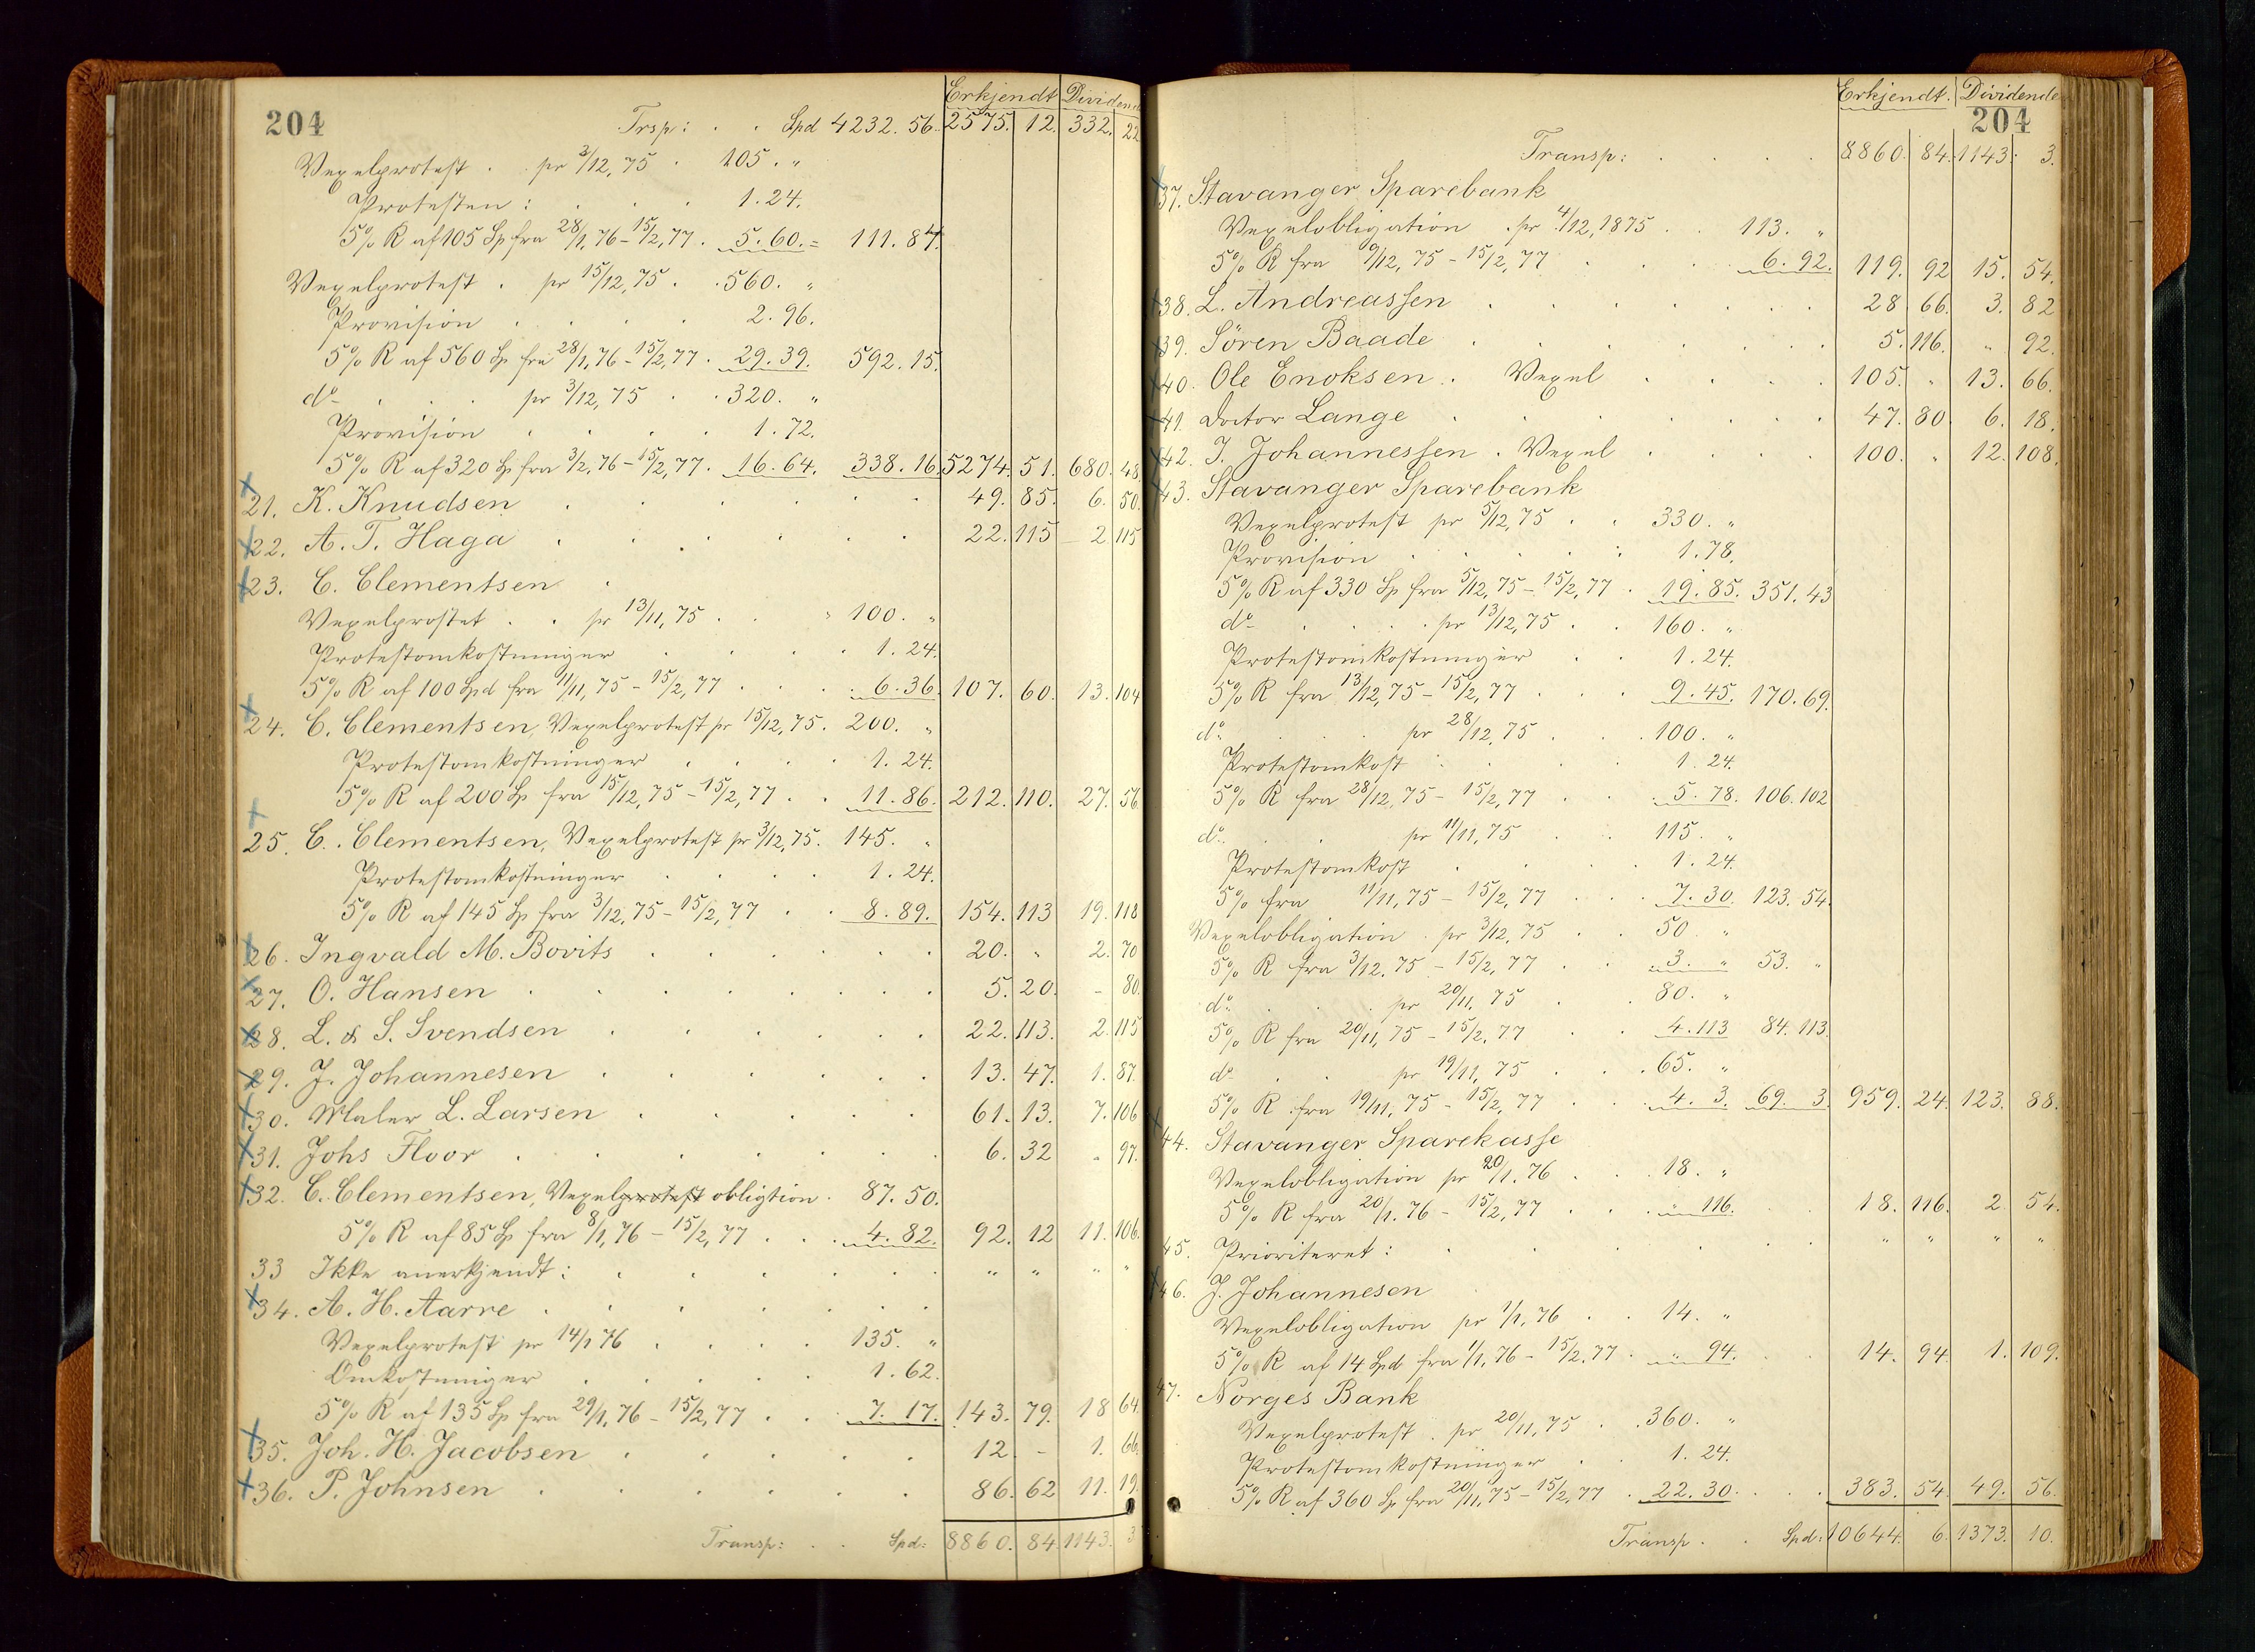 Erkjendt Dividende
204 Trsp: . . Spd 4232. 56. 2575. 12. 332. 22
Vexelprotest . pr 3/12, 75 . 105. "
Protesten : . . . 1. 24.
5% R af 105 Sp fra 28/1, 76 - 15/2, 77. 5. 60. = 111. 84.
Vexelprotest . pr 15/12, 75 . . 560. "
Provision . . . . 2. 96.
5% R af 560 Sp fra 28/1, 76 - 15/2, 77. 29. 39. 592. 15.
do . . . pr 3/12, 75 . . 320. "
Provision . . . . 1. 72.
5% R af 320 Sp fra 3/2, 76 - 15/2, 77. 16. 64. 338. 16. 5274. 51. 680. 48
21. K. Knudsen . . . . . . 49. 85. 6. 50.
22. A. T. Haga . . . . . . 22. 115 2. 115
23. C. Clementsen .
Vexelprostet . . pr 13/11, 75 . . " 100. "
Protestomkostninger . . . . 1. 24.
5% R af 100 Spd fra 11/11, 75 - 15/2, 77 . . . 6. 36. 107. 60. 13. 104
24. C. Clementsen, Vexelprotest pr 15/12, 75. 200. "
Protestomkostninger . . . . 1. 24.
5% R af 200 Sp fra 15/12, 75 - 15/2, 77 . . 11. 86. 212. 110. 27. 56
25. C. Clementsen, Vexelprotest pr 3/12, 75. 145. "
Protestomkostninger . . . . 1. 24.
5% R af 145 Sp fra 3/12, 75 - 15/2, 77 . . 8. 89. 154. 113 19. 118
26. Ingvald M. Bovits . . . . . . 20. " 2. 70
27. O. Hansen . . . . . . 5. 20. - 80.
28. L. & S. Svendsen . . . . . . 22. 113. 2. 115
29. J. Johannesen . . . . . . 13. 47. 1. 87.
30. Maler L. Larsen . . . . . 61. 13. 7. 106
31. Johs Floor . . . . . . . 6. 32 " 97.
32. C. Clementsen, Vexelprotest obligtion . 87. 50.
5% R af 85 Sp fra 8/1, 76 - 15/2, 77 . . . 4. 82. 92. 12 11. 106.
33 Ikke anerkjendt : . . . . . " " " "
34. A. H. Aarre . . . . . . .
Vexelprotest pr 14/1 76 . . . . 135. "
Omkostninger . . . . . 1. 62.
5% R af 135 Sp fra 29/1, 76 - 15/2, 77 . . 7. 17. 143. 79. 18 64.
35. Joh. H. Jacobsen . . . . . 12. - 1. 66.
36. P. Johnsen . . . . . . 86. 62 11. 19.
Transp: . . Spd: 8860. 84. 1143. 3
Erkjendt. Dividende
204
Transp: . . . . 8860. 84. 1143. 3.
37. Stavanger Sparebank
Vexelobligation . pr 4/12, 1875 . . 113. "
5% R fra 9/12, 75 - 15/2, 77 . . . 6. 92. 119. 92 15. 54.
38. L. Andreassen . . . . . . 28. 66. 3. 82
39. Sören Baade . . . . . . . 5. 116. " 92.
40. Ole Enoksen . Vexel . . . . 105. " 13. 66.
41. Doctor Lange . . . . . . . 47. 80. 6. 18.
42. J. Johannessen . Vexel . . . . 100. " 12. 108.
43. Stavanger Sparebank
Vexelprotest pr 5/12, 75 . . 330. "
Provision . . . . . 1. 78.
5% R af 330 Sp fra 5/12, 75 - 15/2, 77 . 19. 85. 351. 43
do . . . . pr 13/12, 75 . . 160. "
Protestomkostninger . . 1. 24.
5% R fra 13/12, 75 - 15/2, 77 . . . 9. 45. 170. 69.
do . . . pr 28/12, 75 . . . 100. "
Protestomkost . . . . 1. 24.
5% R fra 28/12, 75 - 15/2, 77 . . . 5. 78. 106. 102
do . . . pr 11/11, 75 . . 115. "
Protestomkost . . . . 1. 24.
5% fra 11/11, 75 - 15/2, 77 . . . 7. 30. 123. 54.
Vexelobligation . pr 3/12, 75 . . 50. "
5% R fra 3/12. 75 - 15/2, 77 . . 3. " 53. "
do . . . pr 20/11, 75 . . 80. "
5% R fra 20/11, 75 - 15/2, 77 . . 4. 113 84. 113.
do . . pr 19/11, 75 . . . 65. "
5% R fra 19/11, 75 - 15/2, 77 . . . 4. 3. 69. 3. 959. 24. 123. 88.
44. Stavanger Sparekasse
Vexelobligation pr 20/1. 76 . . . 18. "
5% R fra 20/1. 76 - 15/2, 77 . . . " 116. . . 18. 116. 2. 54.
45. Prioriteret : . . . . . . " " " "
46. J. Johannesen
Vexelobligation pr 1/1, 76 . . 14. "
5% R af 14 Spd fra 1/1, 76 - 15/2. 77 . " 94. . . 14. 94. 1. 109.
47. Norges Bank
Vexelprotest . pr 20/11, 75 . . 360. "
Protestomkostninger . . 1. 24.
5% R af 360 Sp fra 20/11, 75 - 15/2, 77 . 22. 30. . . . 383. 54. 49. 56.
Transp . . Spd: 10644. 6. 1373. 10.